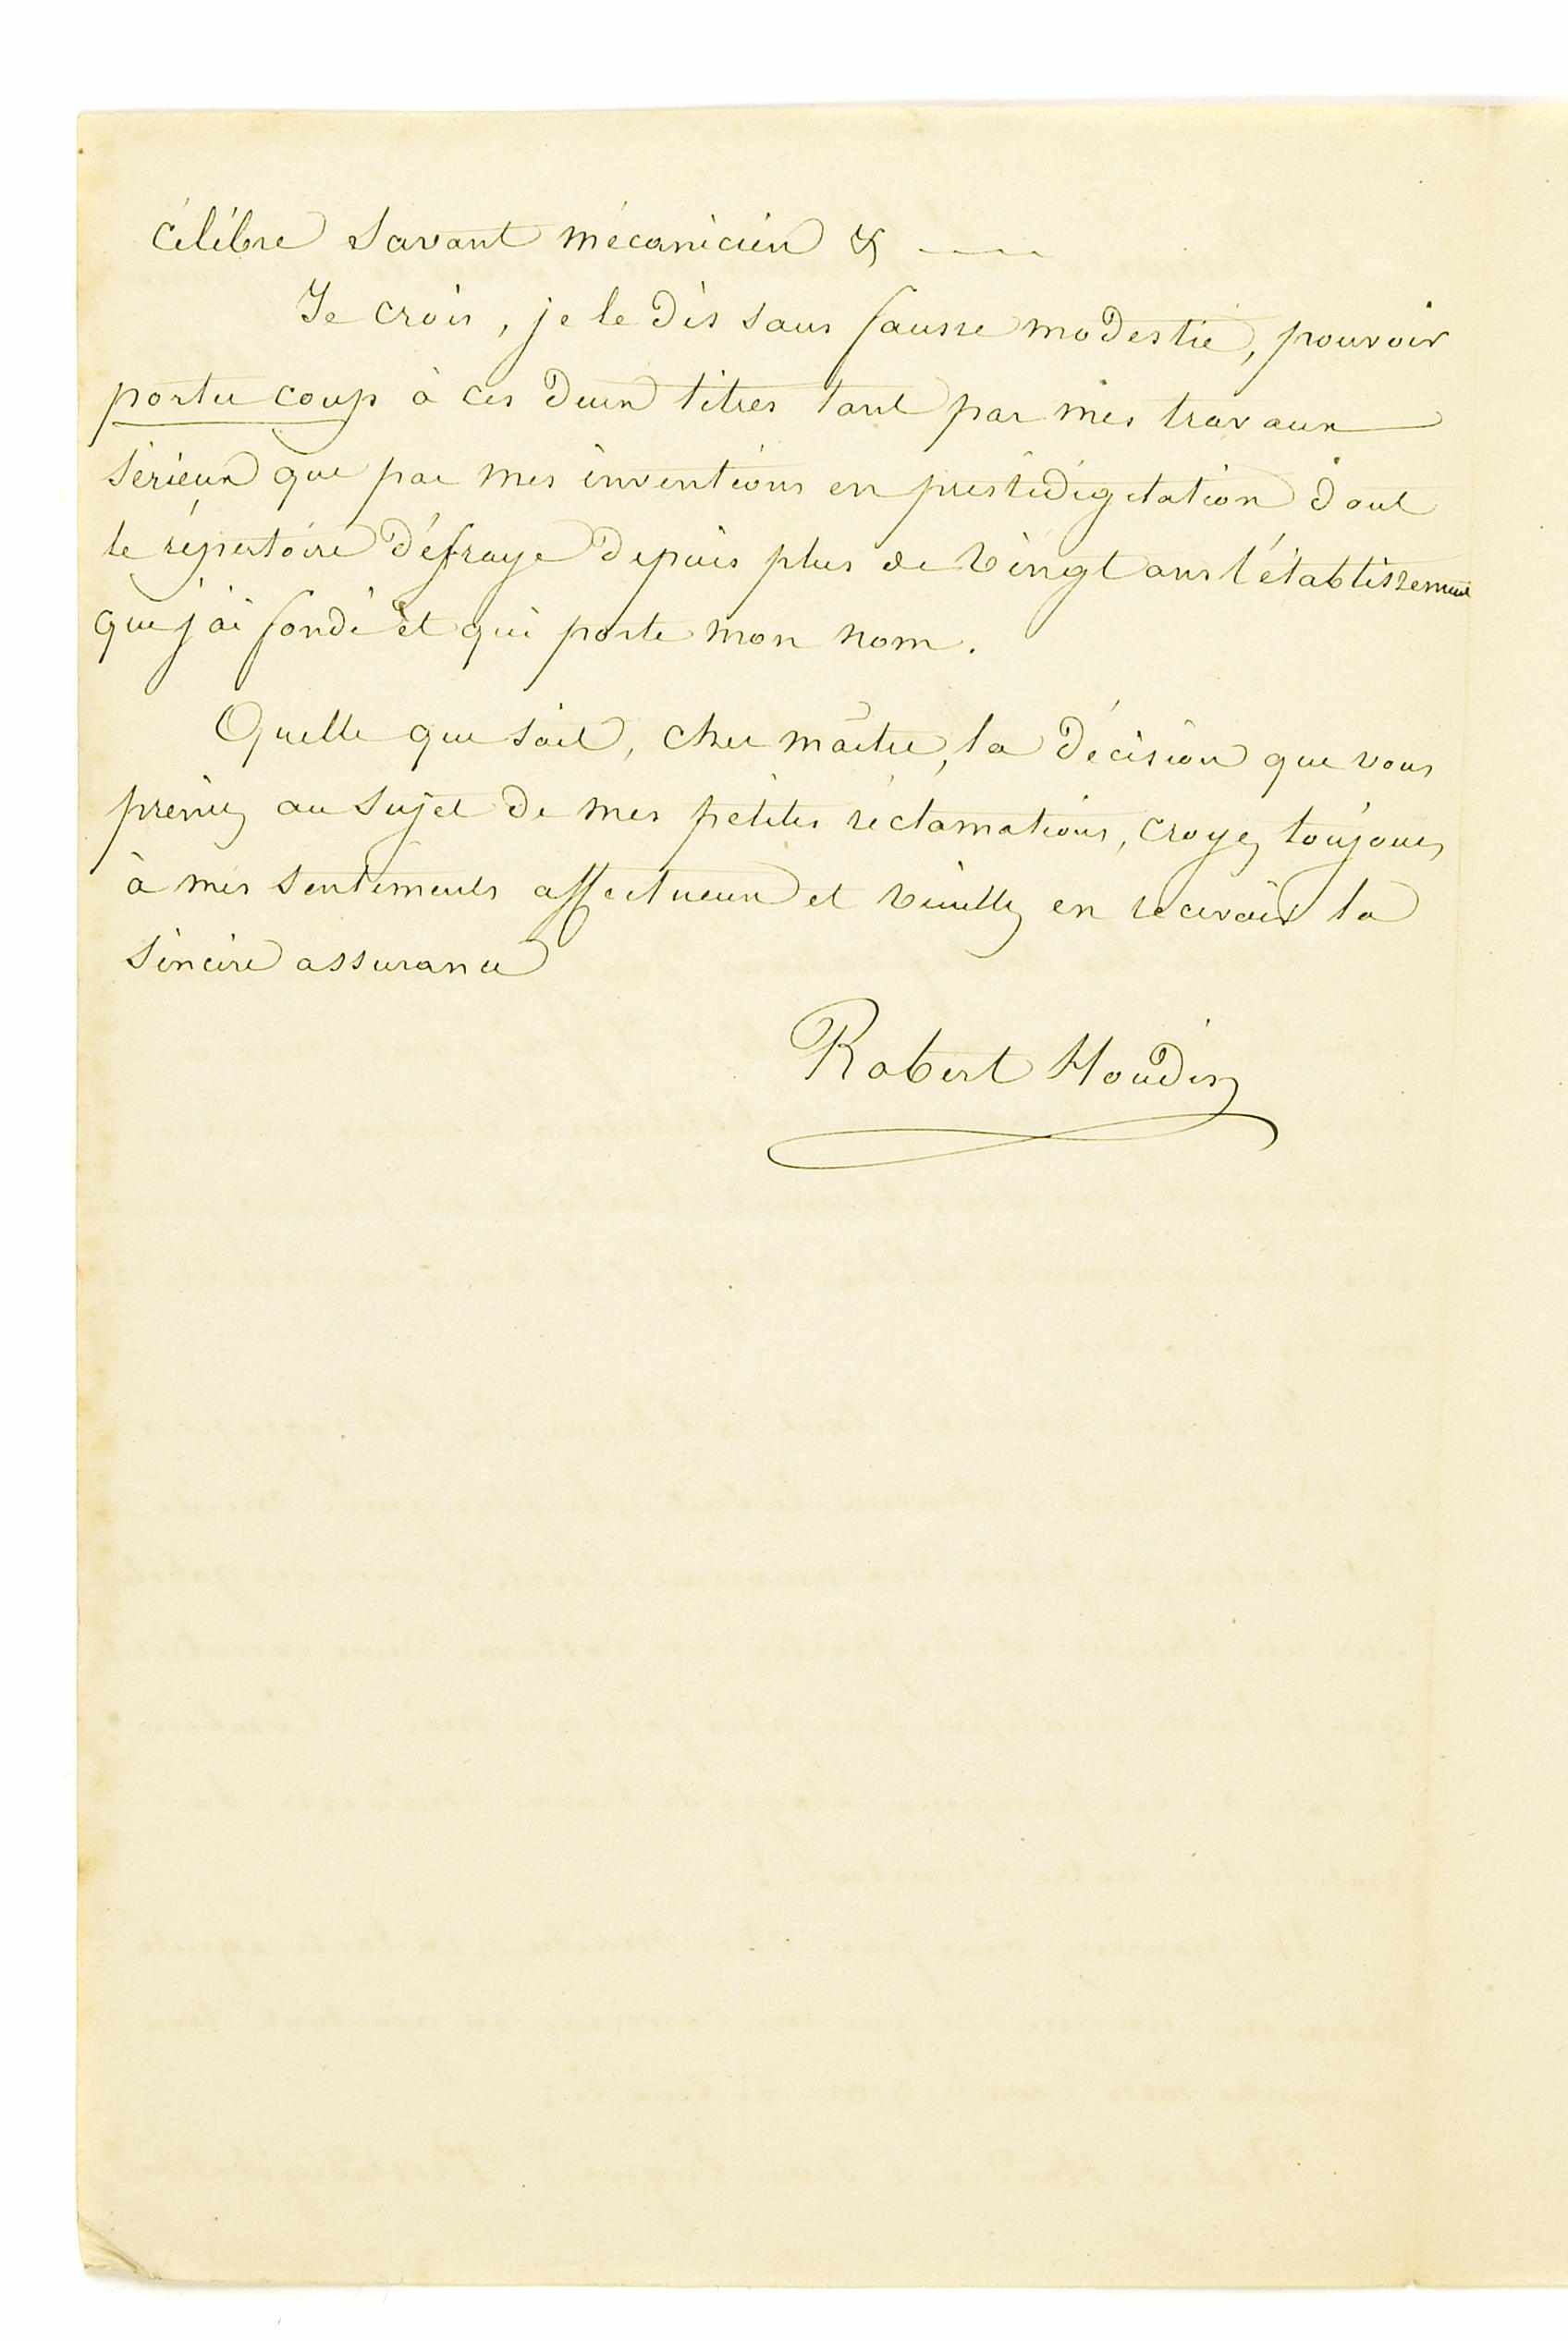 célèbre savant mécanicien & ——
Je crois, je le dis sans fausse modestie, pouvoir
porter coup à ces deux titres tant par mes travaux
sérieux que par mes inventions en prestidigitation dont
le répertoire défraye depuis plus de vingt ans l'établissement
que j'ai fondé et qui porte mon nom.
Quelle que soit, cher maître, la décision que vous
preniez au sujet de mes petites réclamations, croyez toujours
à mes sentiments affectueux et veuillez en recevoir la
sincère assurance
Robert Houdin